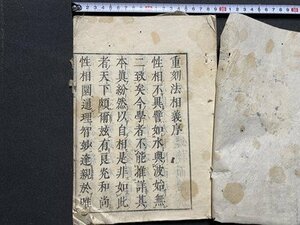 重刻法相義序
性相不異譬如水與波始無
二致矣今學者不能推詳其
本真紛然以自相是非如此
者天下頗爾玆有良光和尚
性相圓通理智妙達親於唯